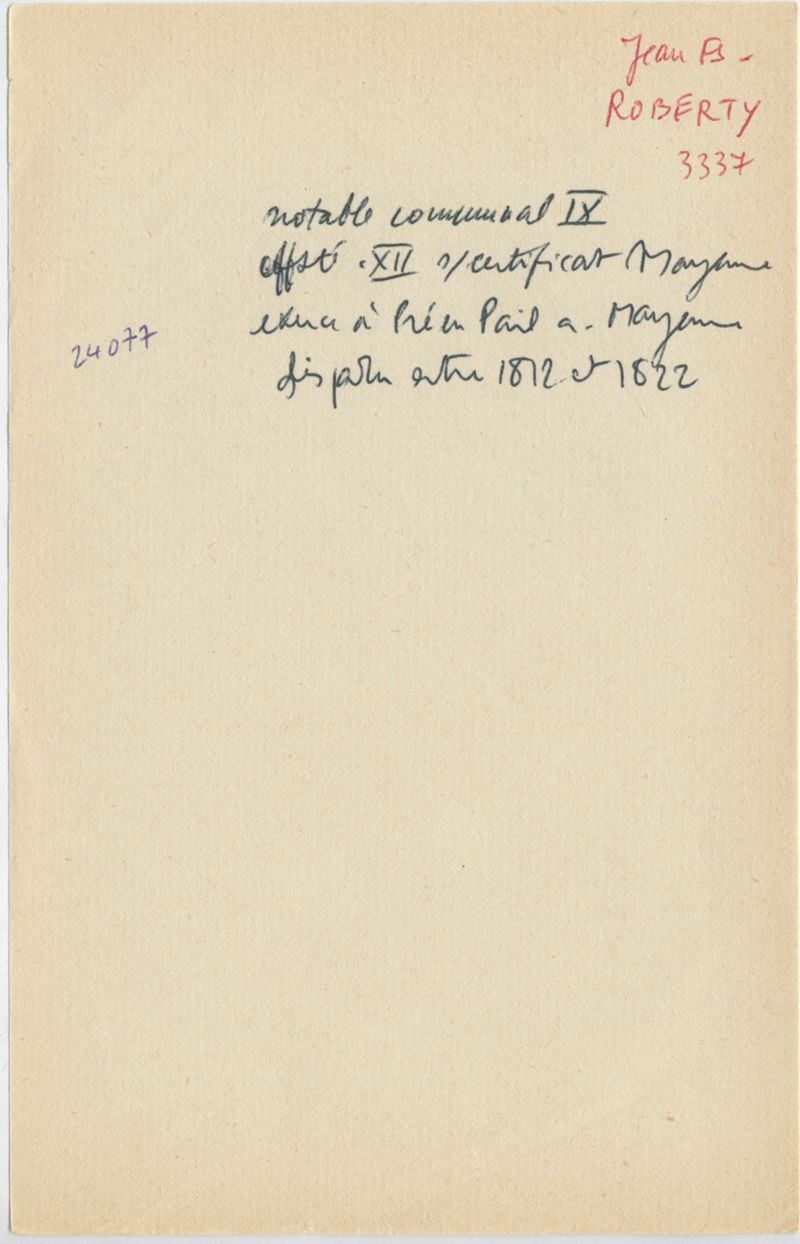 Jean Fs -
ROBERTY
3337
notable communal IX
XII s/certificat Mayenne
exerce à Pré en Pail a. Mayenne
24077
disparu entre 1812 et 1822